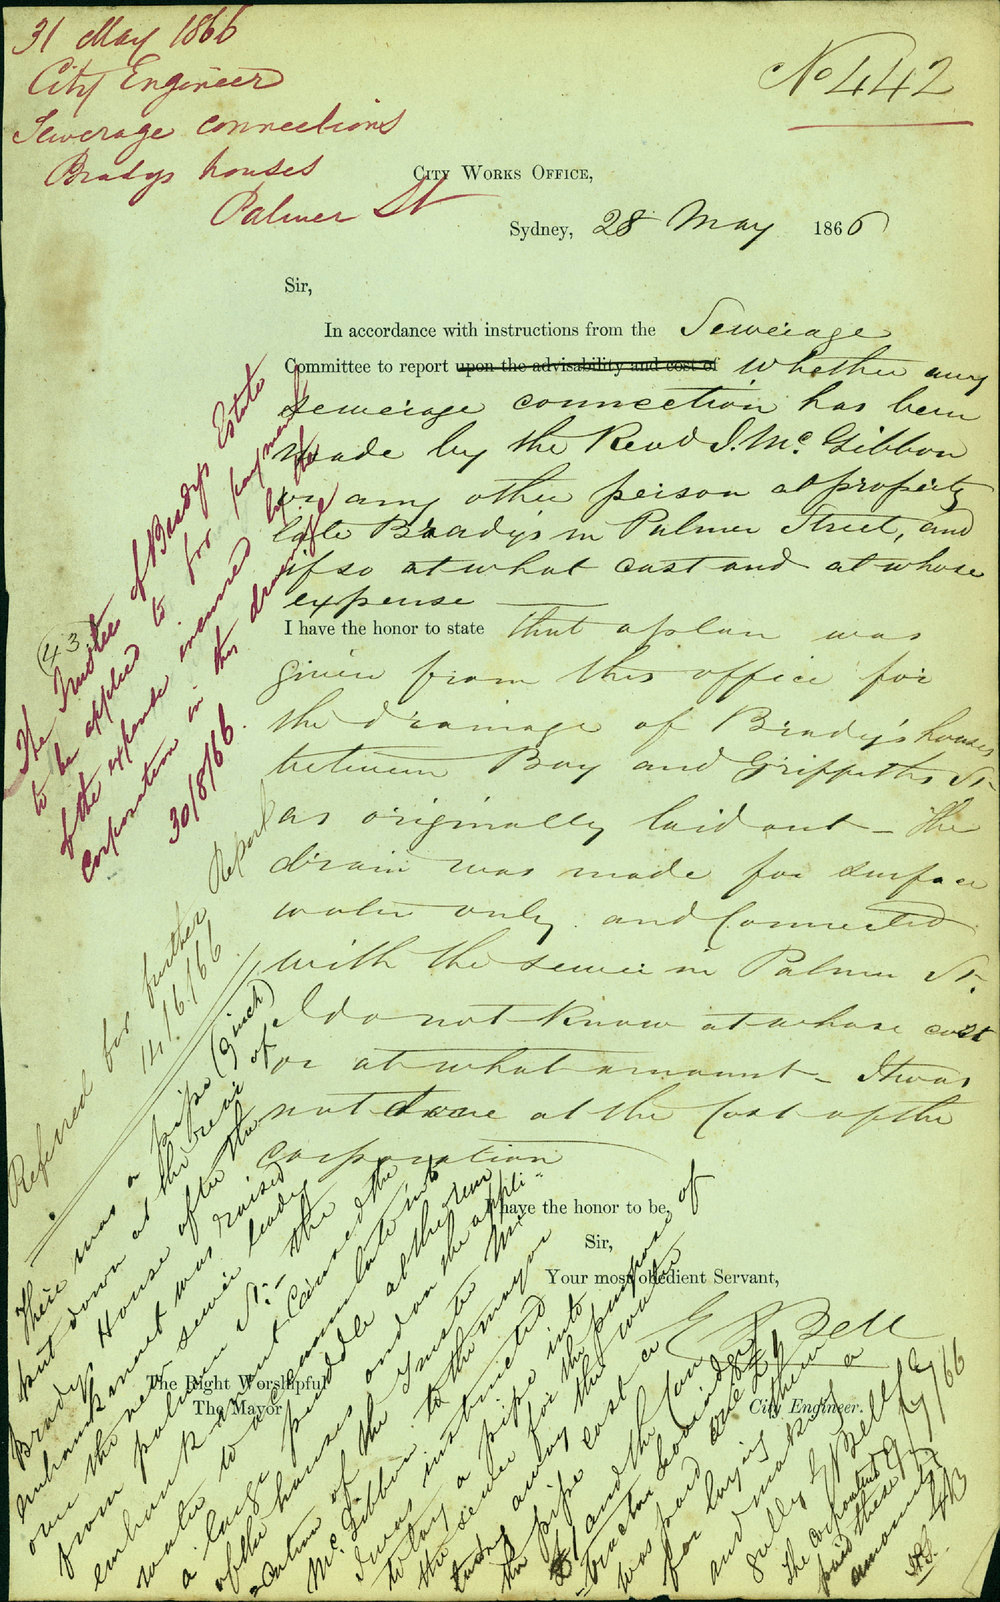 31 May 1866
City Engineer
Sewerage connections
Bradys houses
Palmer St
No 442
City Works Office,
Sydney, 28 May 1866
Sir,
In accordance with instructions from the Sewerage
Committee to report upon the advisability and cost of whether any
sewerage connection has been
made by the Revd J. Mc. Gibbon
or any other person at property
late Brady's in Palmer Street, and
if so at what cost and at whose
expense
I have the honor to state that a plan was
given from this office for
the drainage of Brady's houses
between Bay and Griffiths St
as originally laid out – the
drain was made for surface
water only and connected
with the sewer in Palmer St.
I do not know at whose cost
or at what amount – It was
not done at the cost of the
corporation
I have the honor to be,
Sir,
Your most obedient Servant,
E Bell
City Engineer.
The Right Worshipful
The Mayor
(43)
The Trustees of Bradys Estate
to be applied to for payment
of the expense incurred by the
Corporation in this drainage
30/8/66.
Referred for further Report
14/6/66
There was a pipe (9 inch)
put down at the rear of
Bradys House after the
embankment was raised
over the new sewer leading
from palmer St – the
embankment caused the
water to accumulate into
a large puddle at the rear
of the houses and on the appli-
-cation of the Trustee Mr
Mc Gibbon to the mayor
I was instructed
to lay a pipe into
the sewer for the purpose of
turning away the water
the pipe cost
£1 and the Con
-tractor
was paid
for laying them
and making a
gully E Bell CE
The Corporation
paid these
amounts